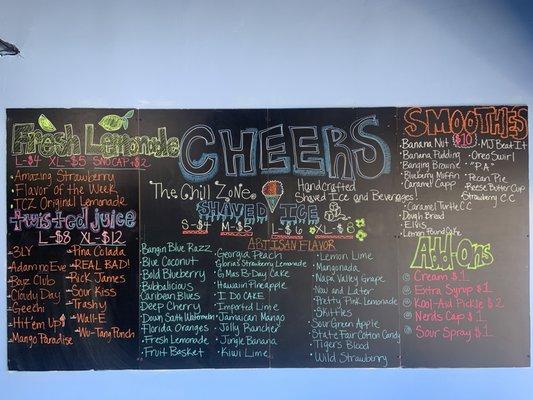 Fresh Lemonade
L-$4 XL-$5 SNOCAP-$2
Amazing Strawberry
Flavor of the Week
TCZ Original Lemonade
twisted Juice
L-$8 XL-$12
3LY
Adam no Eve
Boyz Club
Cloudy Day
Geechi
Hit'em Up
Mango Paradise
Pina Colada
REAL BAD!
Rick James
Sour Kiss
Trashy
Wall-E
Wu-Tang Punch
CHEERS
The Chill Zone
Handcrafted
Shaved Ice and Beverages!
SHAVED ICE
S-$4 M-$5 L-$6 XL-$8
ARTISAN FLAVOR
Bangin Blue Razz
Blue Coconut
Bold Blueberry
Bubbalicious
Caribean Blues
Deep Cherry
Down South Watermelon
Florida Oranges
Fresh Lemonade
Fruit Basket
Georgia Peach
Gloria's Strawberry Lemonade
G Mas B-Day Cake
Hawaiin Pineapple
I DO CAKE
Imported Lime
Jamaican Mango
Jolly Rancher
Jungle Banana
Kiwi Lime
Lemon Lime
Mangonada
Napa Valley Grape
Now and Later
Pretty Pink Lemonade
Skittles
Sour Green Apple
State Fair Cotton Candy
Tigers Blood
Wild Strawberry
SMOOTHES
$10
Banana Nut
Banana Pudding
Banging Brownie
Blueberry Muffin
Caramel Capp
Caramel Turtle C.C
Dough Bread
ELVIS
Lemon Pound Cake
MJ Beat It
Oreo Swirl
"PA"
Pecan Pie
Reese Butter Cup
Strawberry C.C
Add-Ons
Cream $1
Extra Syrup $1
Kool-Aid Pickle $2
Nerds Cap $1
Sour Spray $1